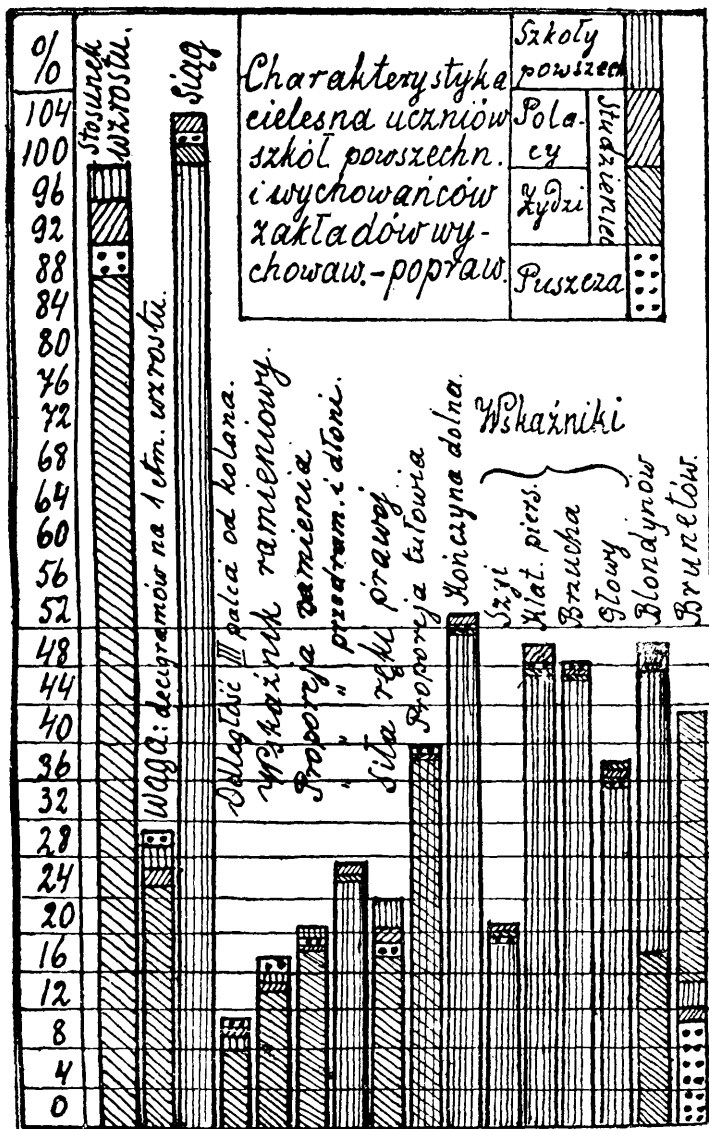 %
104
100
96
92
88
84
80
76
72
68
64
60
56
52
48
44
40
36
32
28
24
20
16
12
8
4
0
Charakterystyka
cielesna uczniów
szkół powszechn.
i wychowańców
zakładów wy-
chowaw.-popraw.
Szkoły
powszech
Pola-
cy
Żydzi
Studzieniec
Puszcza
Stosunek
wzrostu.
Waga: decigramów na 1 ctm. wzrostu.
Siąg
Odległość III palca od kolana.
Wskaźnik ramieniowy.
Proporcja ramienia
" " przedram. i dłoni.
Siła ręki prawej
Proporcja tułowia
Kończyna dolna.
Wskaźniki
Szyi
Klat. piers.
Brzucha
Głowy
Blondynów
Brunetów.